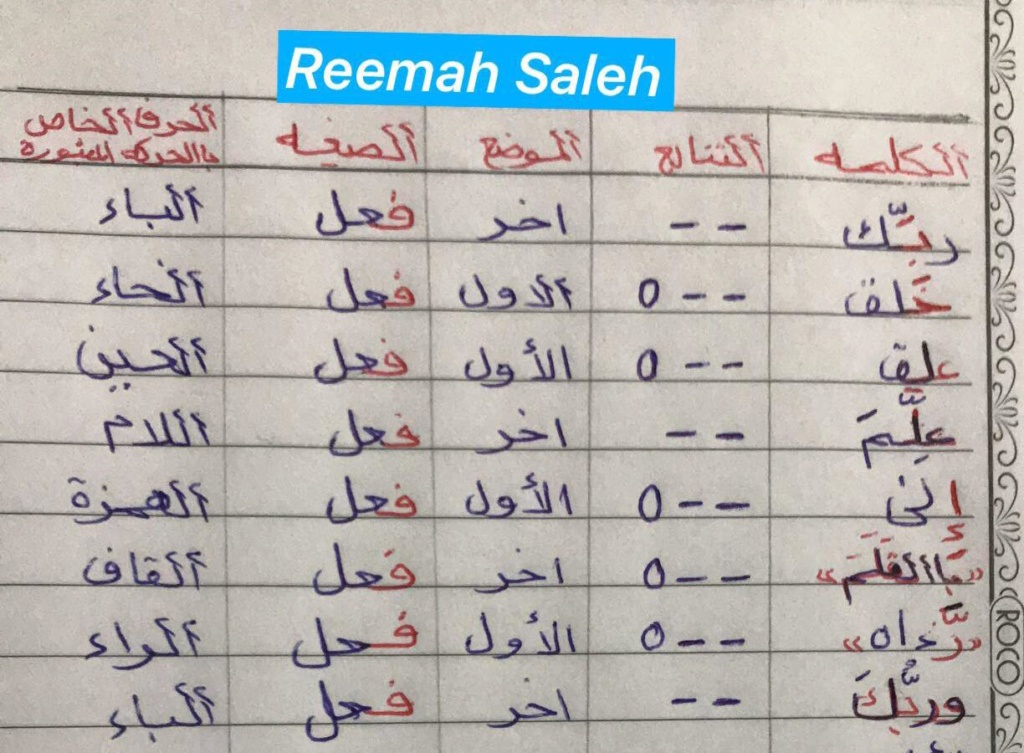 Reemah Saleh
الكلمه النتائج الموضع الصيغه الحرف الخاص باالحركه المشورة
ربّك -- اخر فعل الباء
خَلق --٥ الاول فعل الخاء
علق --٥ الأول فعل العين
علِّمَ -- اخر فعل اللام
إلى --٥ الأول فعل الهمزة
--٥ اخر فعل القاف
--٥ الأول فعل الراء
وربُّكَ -- اخر فعل الباء
ROCO